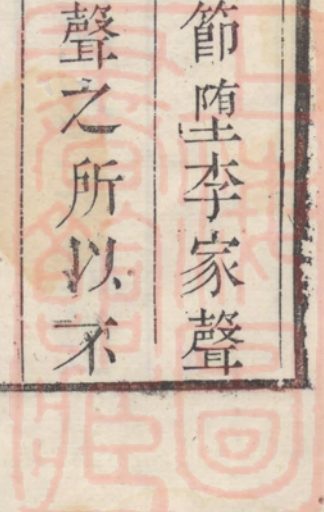 節堕李家聲
聲之所以不